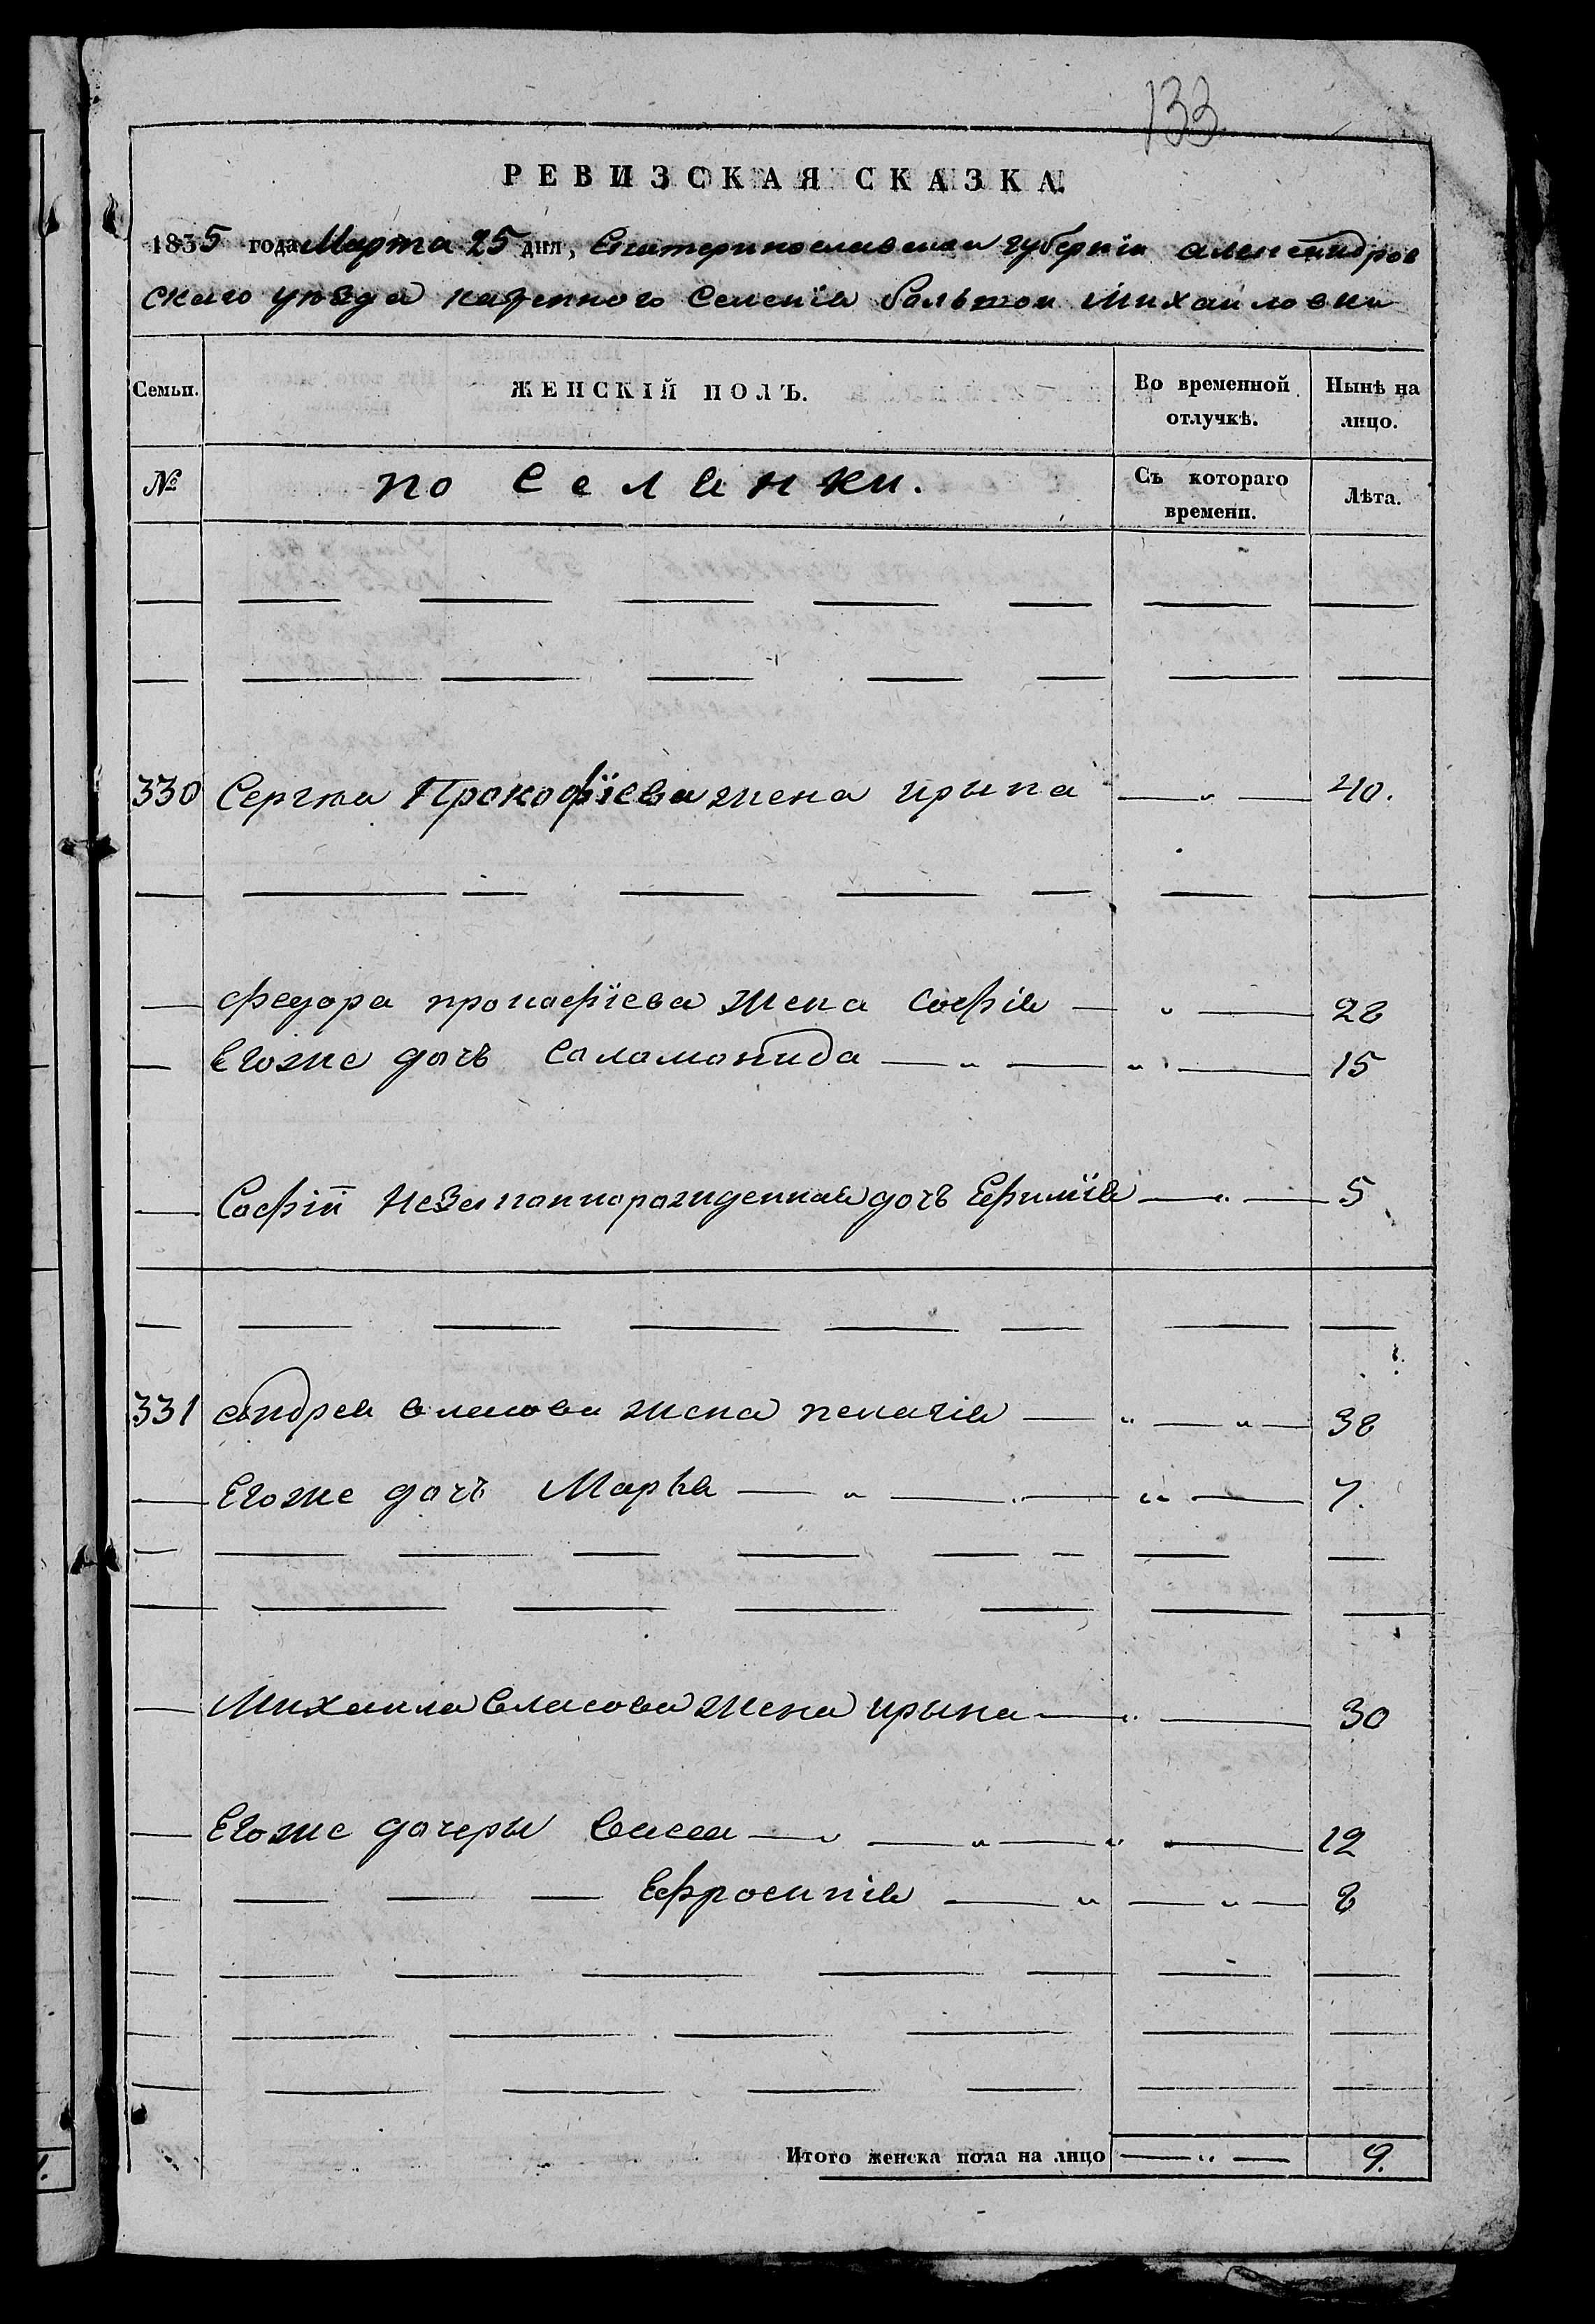 133
РЕВИЗСКАЯ СКАЗКА.
1835 года Марта 25 дня, Екатеринославской губернїи александров
скаго уѣзда казенного Селенїя болшой Михайловки
Семьи. ЖЕНСКІЙ ПОЛЪ. Во временной отлучкѣ. Нынѣ на лицо.
№ поселянки. Съ котораго времени. Лѣта.
330 Сергея Прокофїева жена ирына — „ — 40.
— федора прокофїева жена софїя — „ — 28
— Егоже дочъ Саламонида — „ — „ — 15
— Софїи незаконнорожденная дочъ Ефимїя — „ — 5
331 андрея власова жена пелагїя — „ — „ — 38
— Егоже дочъ Марѣя — „ — „ — „ — 7.
— Михаила власова жена ирына — „ — 30
— Егоже дочеры васса — „ — „ — „ — 12
— — — — Ефросинїя — „ — „ — 8
Итого женска пола на лицо — „ — 9.